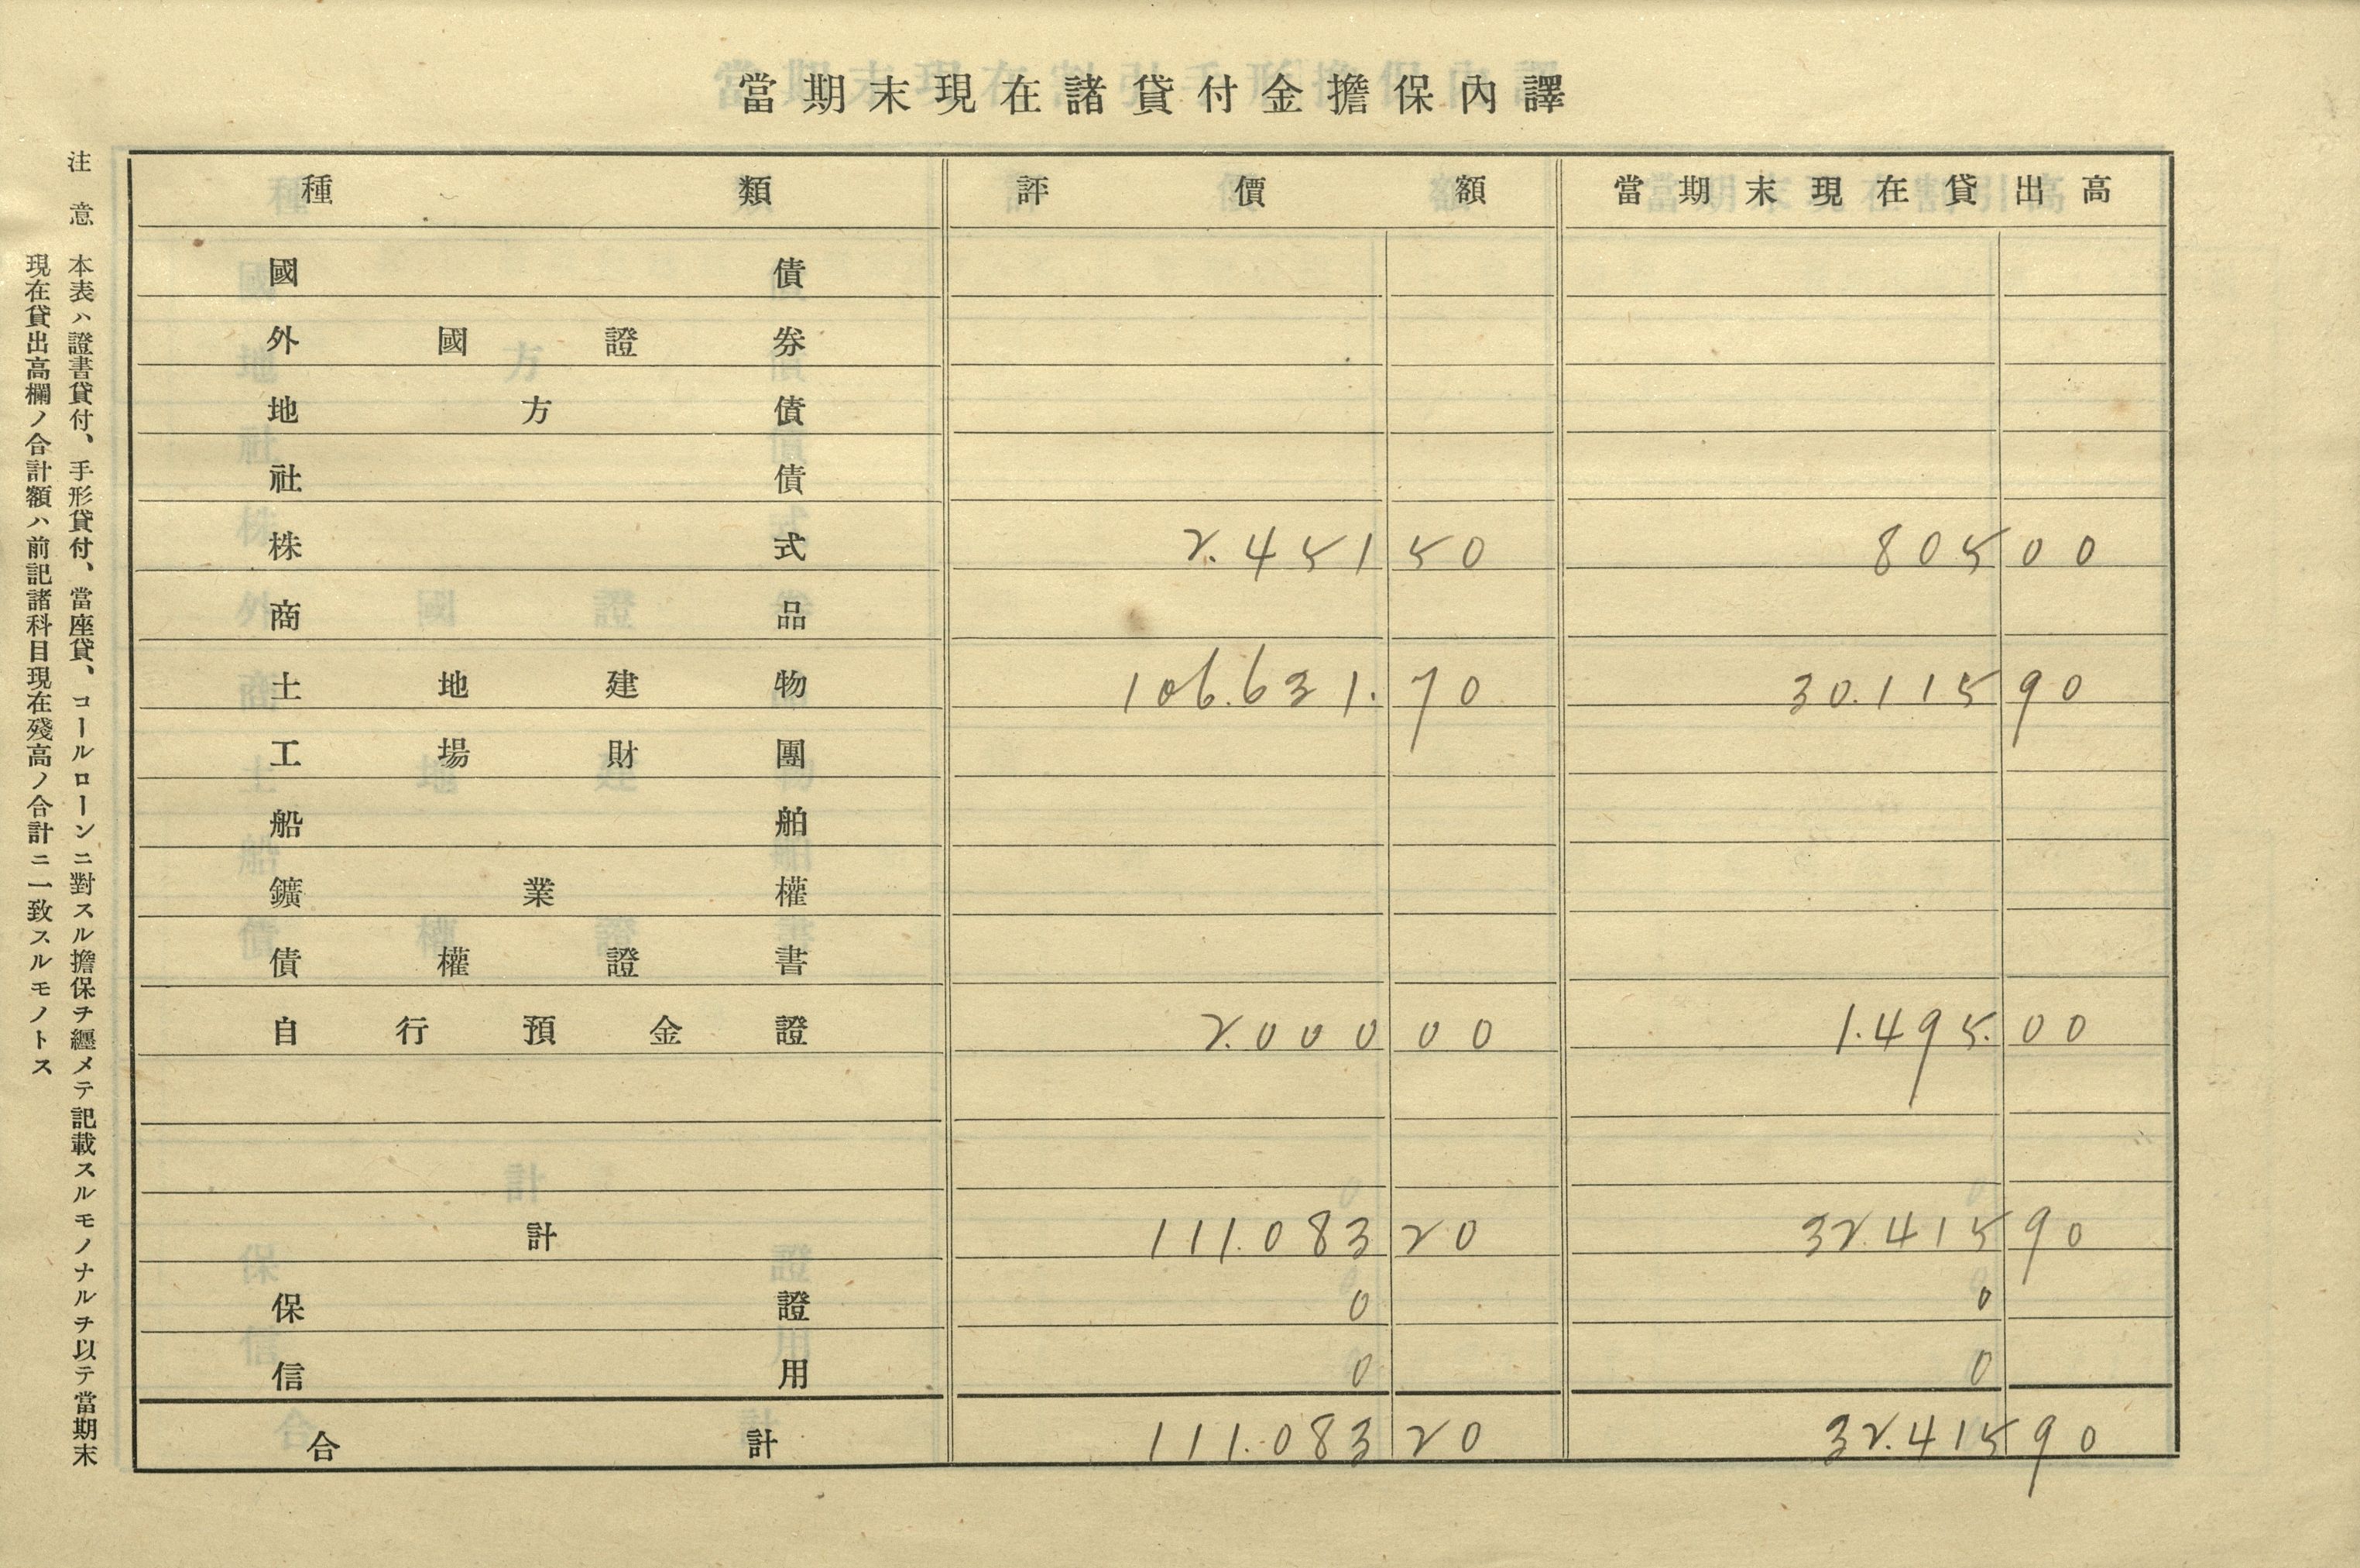 當期末現在諸貸付金擔保內譯
種類 評價額 當期末現在貸出高
國債
外國證券
地方債
社債
株式 2.451 50 805 00
商品
土地建物 106.631. 70 30.115 90
工場財團
船舶
鑛業權
債權證書
自行預金證 2.000 00 1.495. 00
計 111.083 20 32.415 90
保證 0 0
信用 0 0
合計 111.083 20 32.415 90
注意 本表ハ證書貸付、手形貸付、當座貸、コールローンニ對スル擔保ヲ纒メテ記載スルモノナルヲ以テ當期末
現在貸出高欄ノ合計額ハ前記諸科目現在殘高ノ合計ニ一致スルモノトス